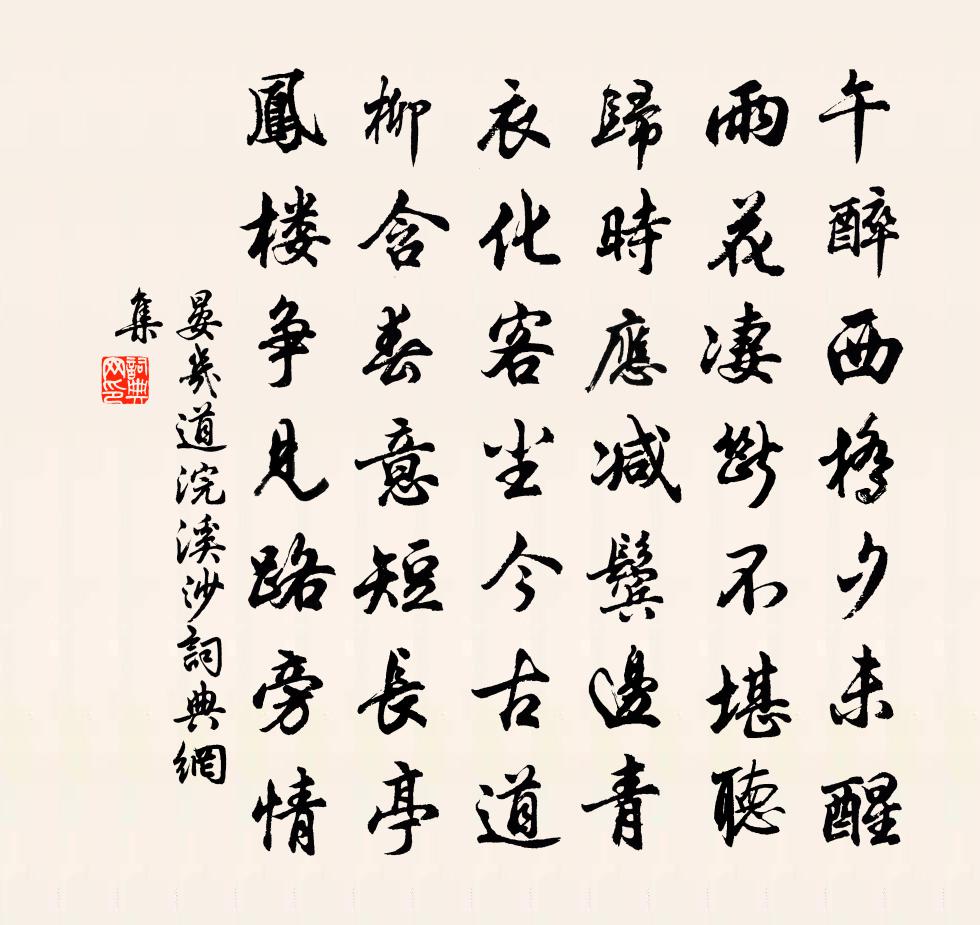 午醉西橋夕未醒
雨花凄斷不堪聽
歸時應减鬢邊青
衣化客尘今古道
柳含春意短長亭
鳳楼争見路旁情
晏幾道浣溪沙詞典網
集
詞典
网印